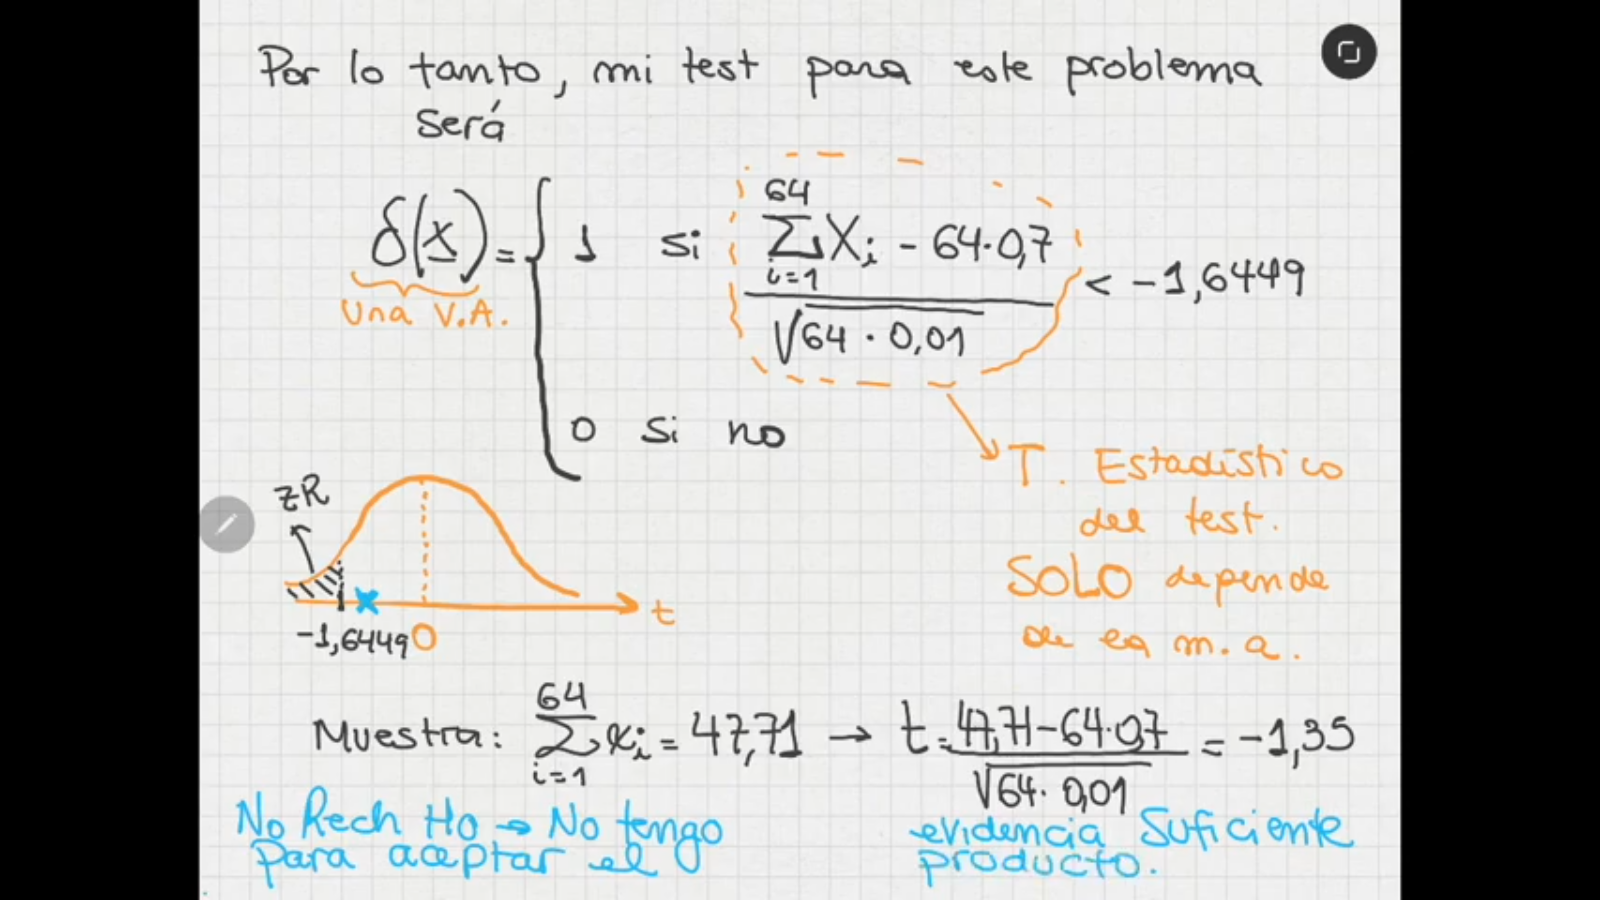 Por lo tanto, mi test para este problema
será
δ(X) = { 1 si (∑_{i=1}^{64} Xi - 64·0,7) / √(64·0,01) < -1,6449
Una V.A.
0 si no
T. Estadístico
del test.
SOLO depende
de la m.a.
ZR
-1,6449 0 t
Muestra: ∑_{i=1}^{64} xi = 47,71 → t = (47,71-64·0,7) / √(64·0,01) = -1,35
No Rech Ho → No tengo evidencia suficiente
para aceptar el producto.